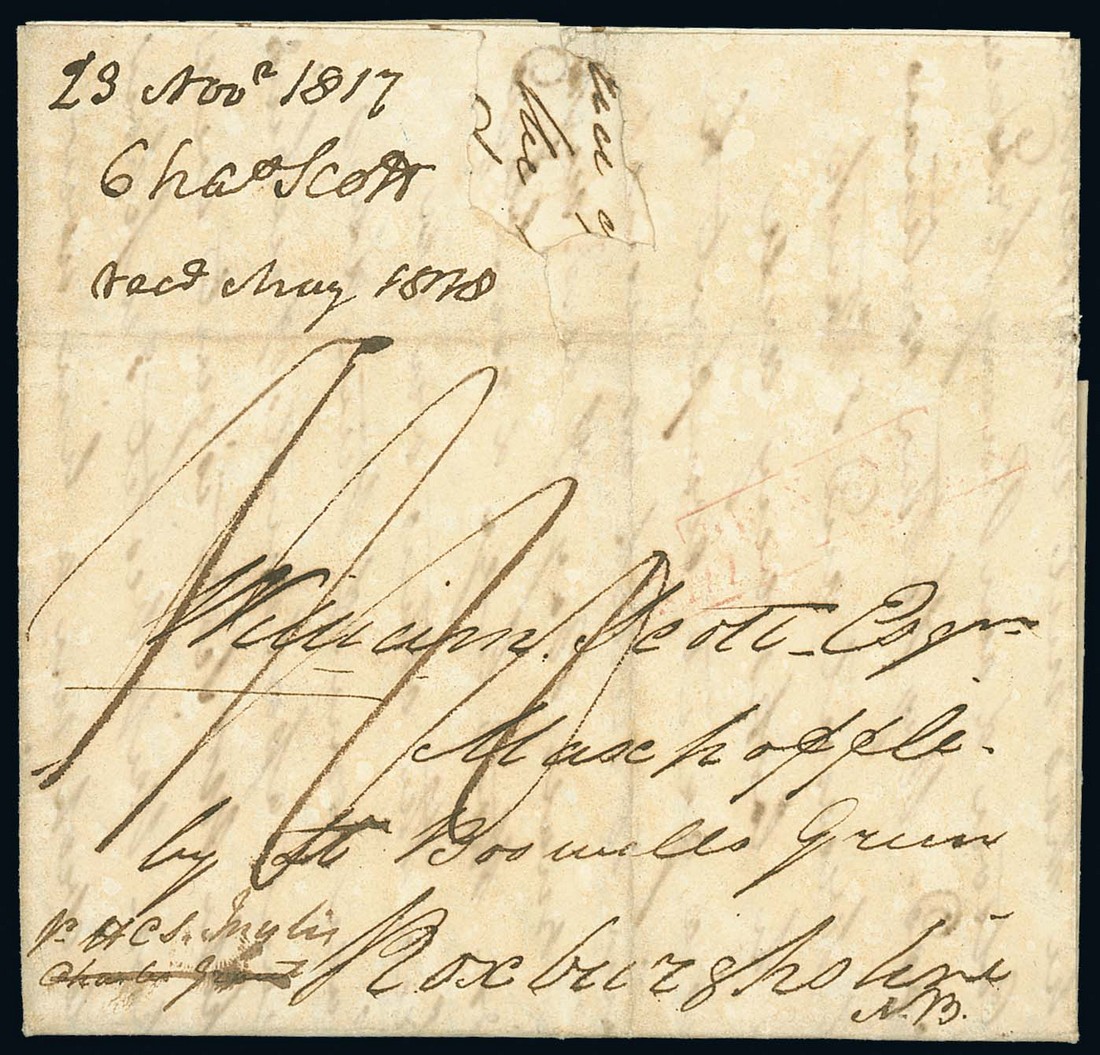 23 Novr 1817
Chas Scott
recd May 1818
William Scott Esqr
Maxpoffle
by St Boswells Green
pr HCS. Inglis
Charles Grant
Roxburghshire
N.B.